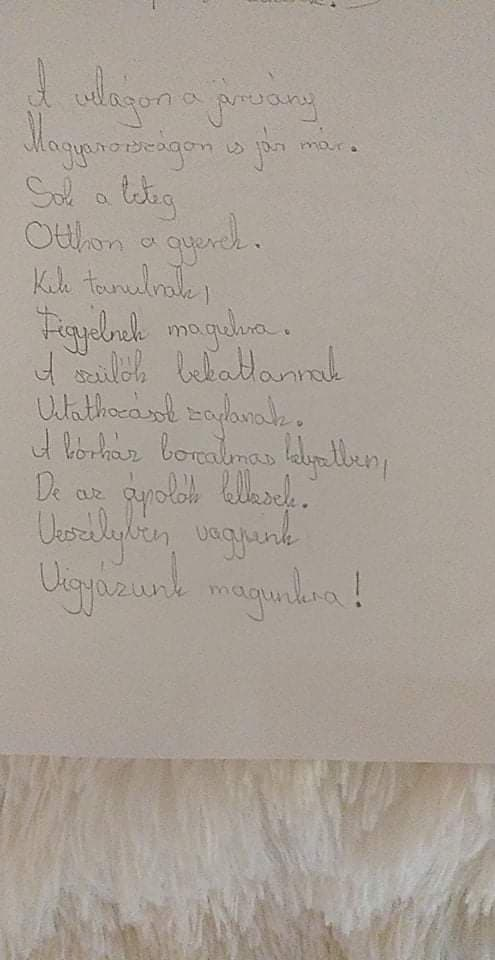 A világon a járvány
Magyarországon is jár már.
Sok a beteg
Otthon a gyerek.
Kik tanulnak,
Figyelnek magukra.
A szülők bekattannak
Vitatkozások zajlanak.
A kórház borzalmas helyzetben,
De az ápolók lelkesek.
Veszélyben vagyunk
Vigyázunk magunkra!